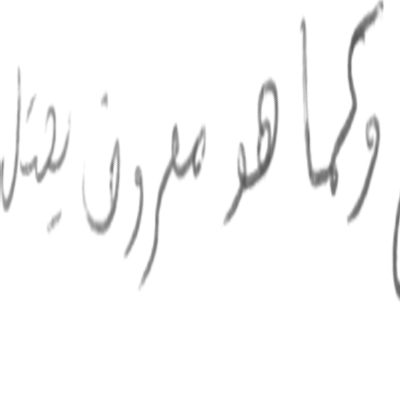 وكما هو معروف يحتل